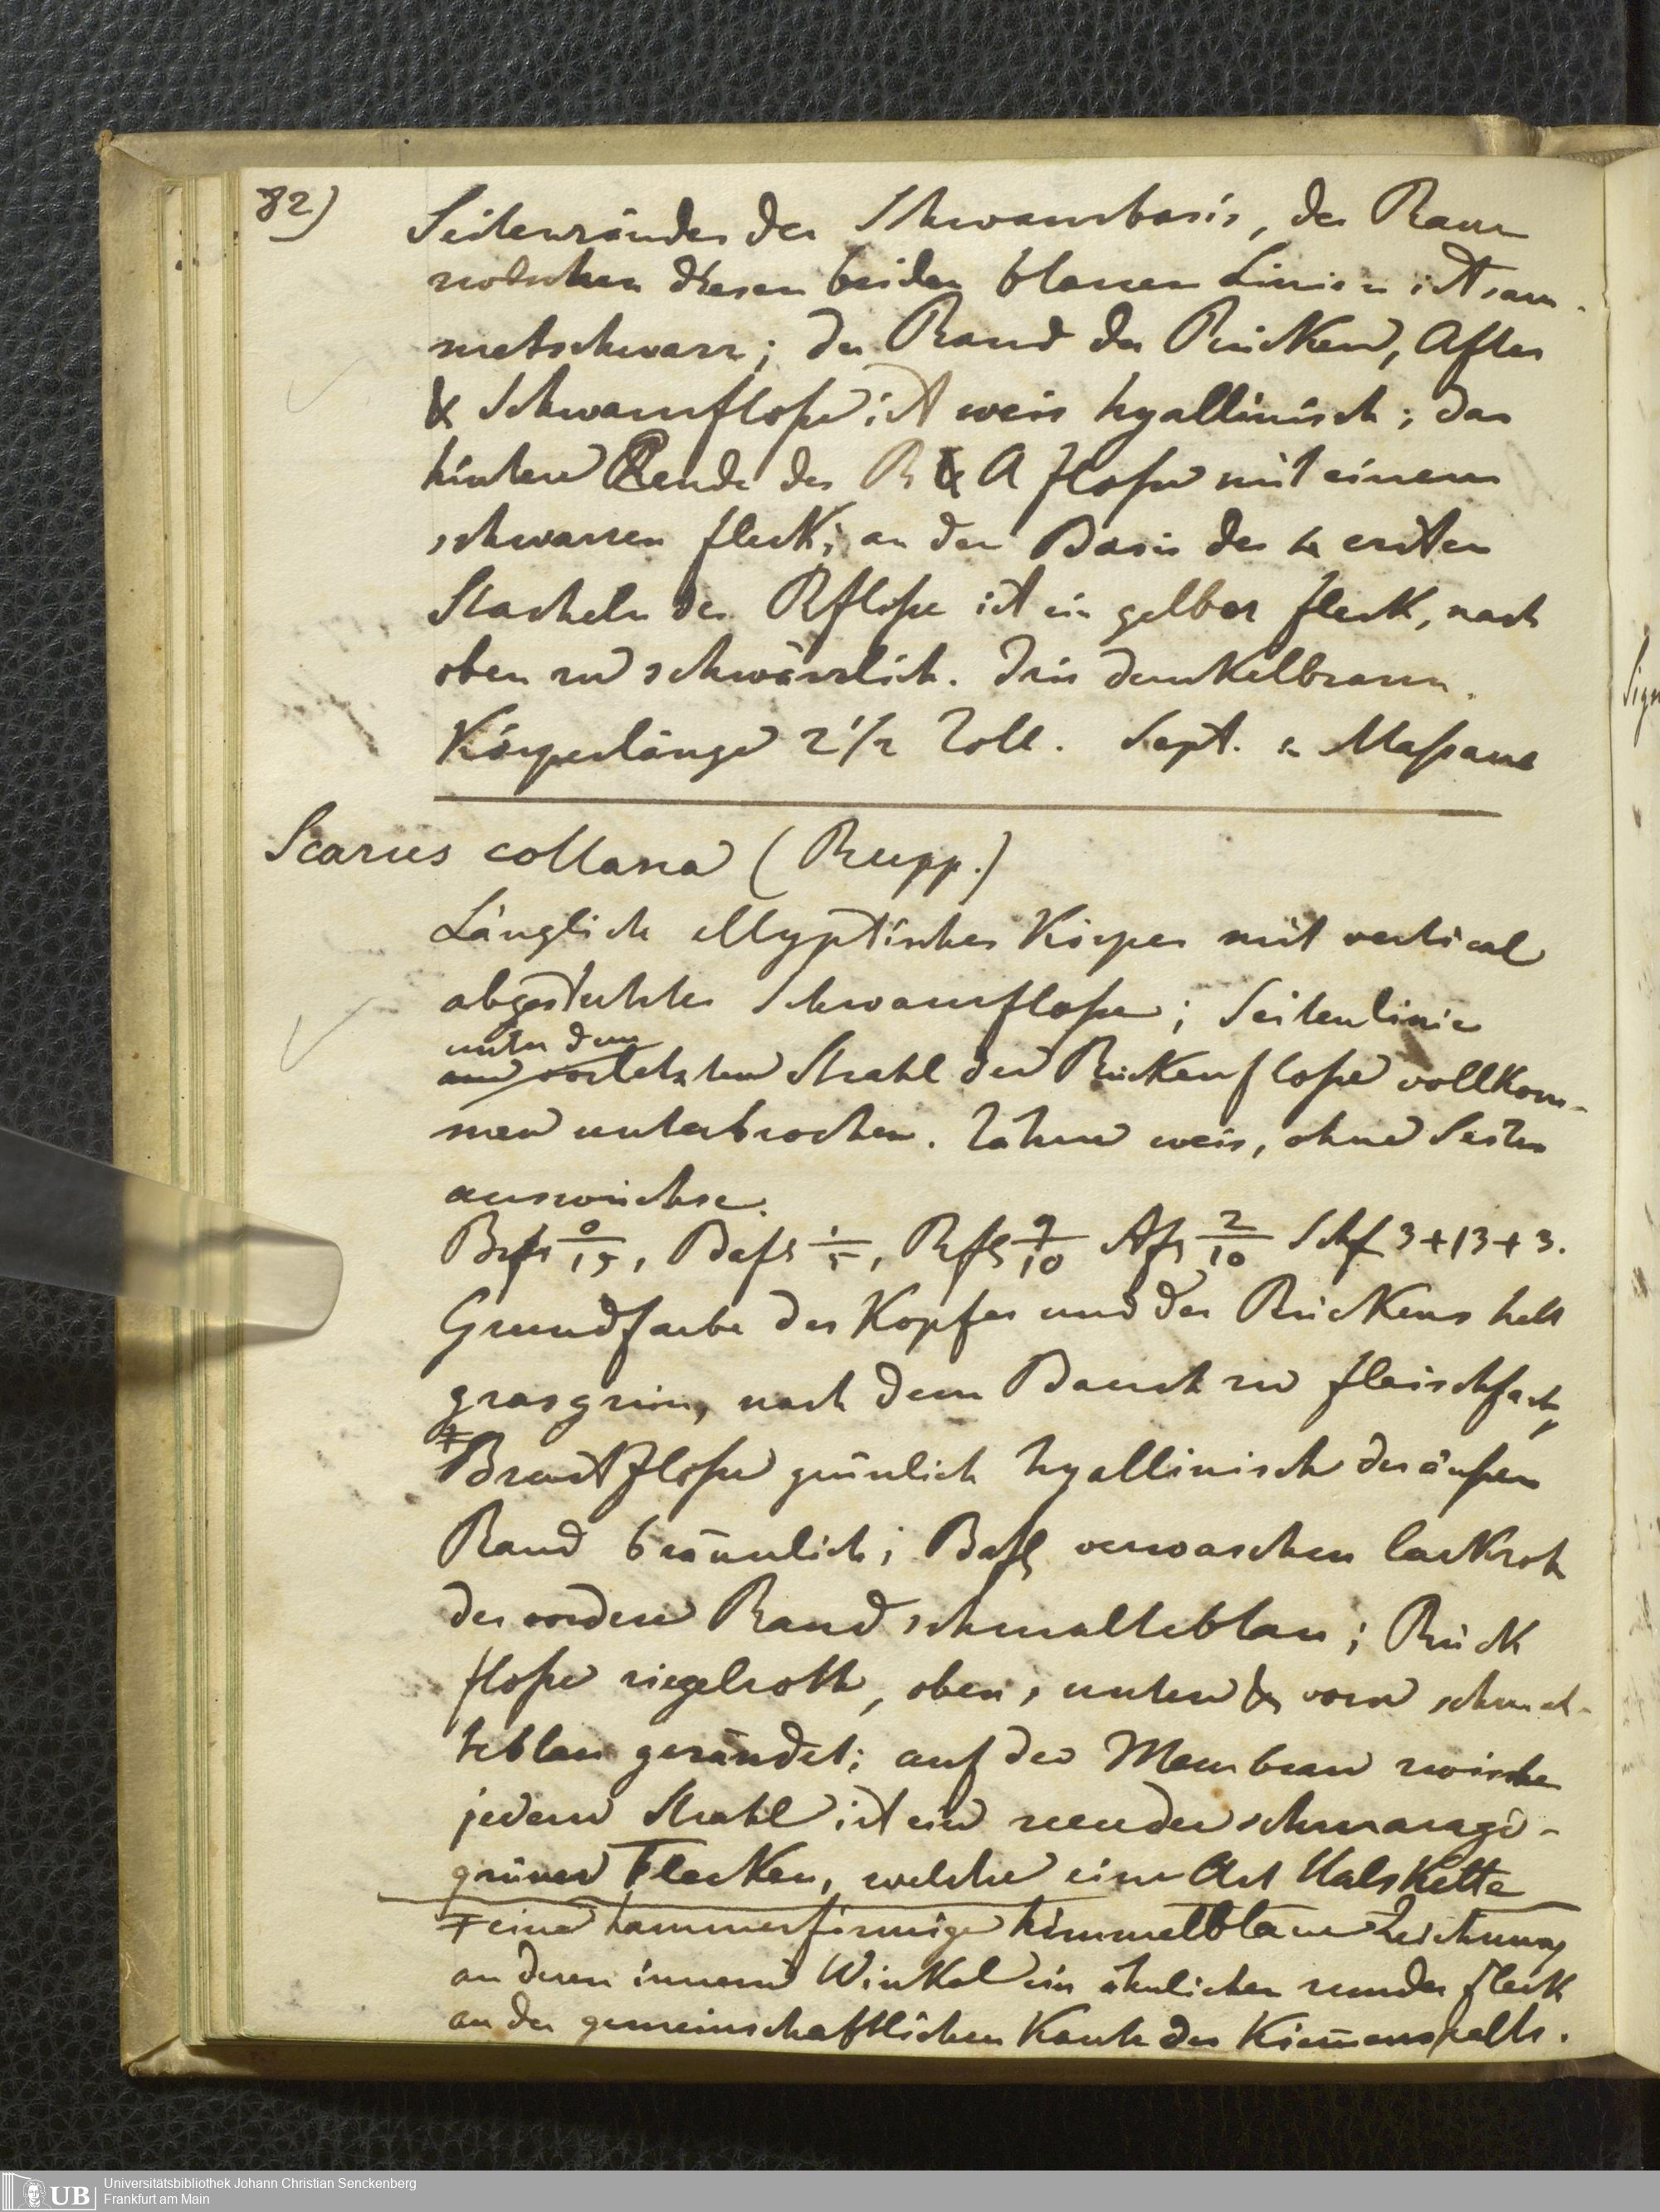 82)
Seitenränder der Schwanzbasis, der Raum
zwischen diesen beiden blauen Linien ist sam-
metschwarz; der Rand der Rücken, After
& Schwanzfloße ist weis hyallinisch; das
hintere Ende der R & A floße mit einem
schwarzen fleck; an der Basis der 4 ersten
Stacheln der Rfloße ist ein gelber fleck, nach
oben zu schwärzlich. Iris dunkelbraun.
Körperlänge 2 1/2 Zoll. Sept. a Maßaua
Scarus collana (Rupp.)
Länglich ellyptischer Körper mit vertical
abgestutzter Schwanzfloße; Seitenlinie
unter dem
letzten Strahl der Rückenfloße vollkom-
men unterbrochen. Zähne weis, ohne Seiten
auswüchse.
Brfs 0/15, Bafs 1/5, Rfls 9/10 Afs 2/10 Schf 3+13+3.
Grundfarbe des Kopfes und des Rückens hell
grasgrün, nach dem Bauch zu fleischfarb,
Brustfloße grünlich hyallinisch der äußere
Rand bräunlich; Bafl verwaschen lackroth
der vordere Rand schmalteblau; Rück
floße ziegelroth, oben, unten & vorn schmal-
teblau gerändet; auf der Membran zwischen
jedem Strahl ist ein runder schmaragd-
grüner Flecken, welche eine Art Halskette
eine hammerförmige himmelblaue Zeichnung
an deren innern Winkel ein ähnlicher runder fleck
an der gemeinschaftlichen Kante des Kiemenspalts.
Universitätsbibliothek Johann Christian Senckenberg
Frankfurt am Main
UB